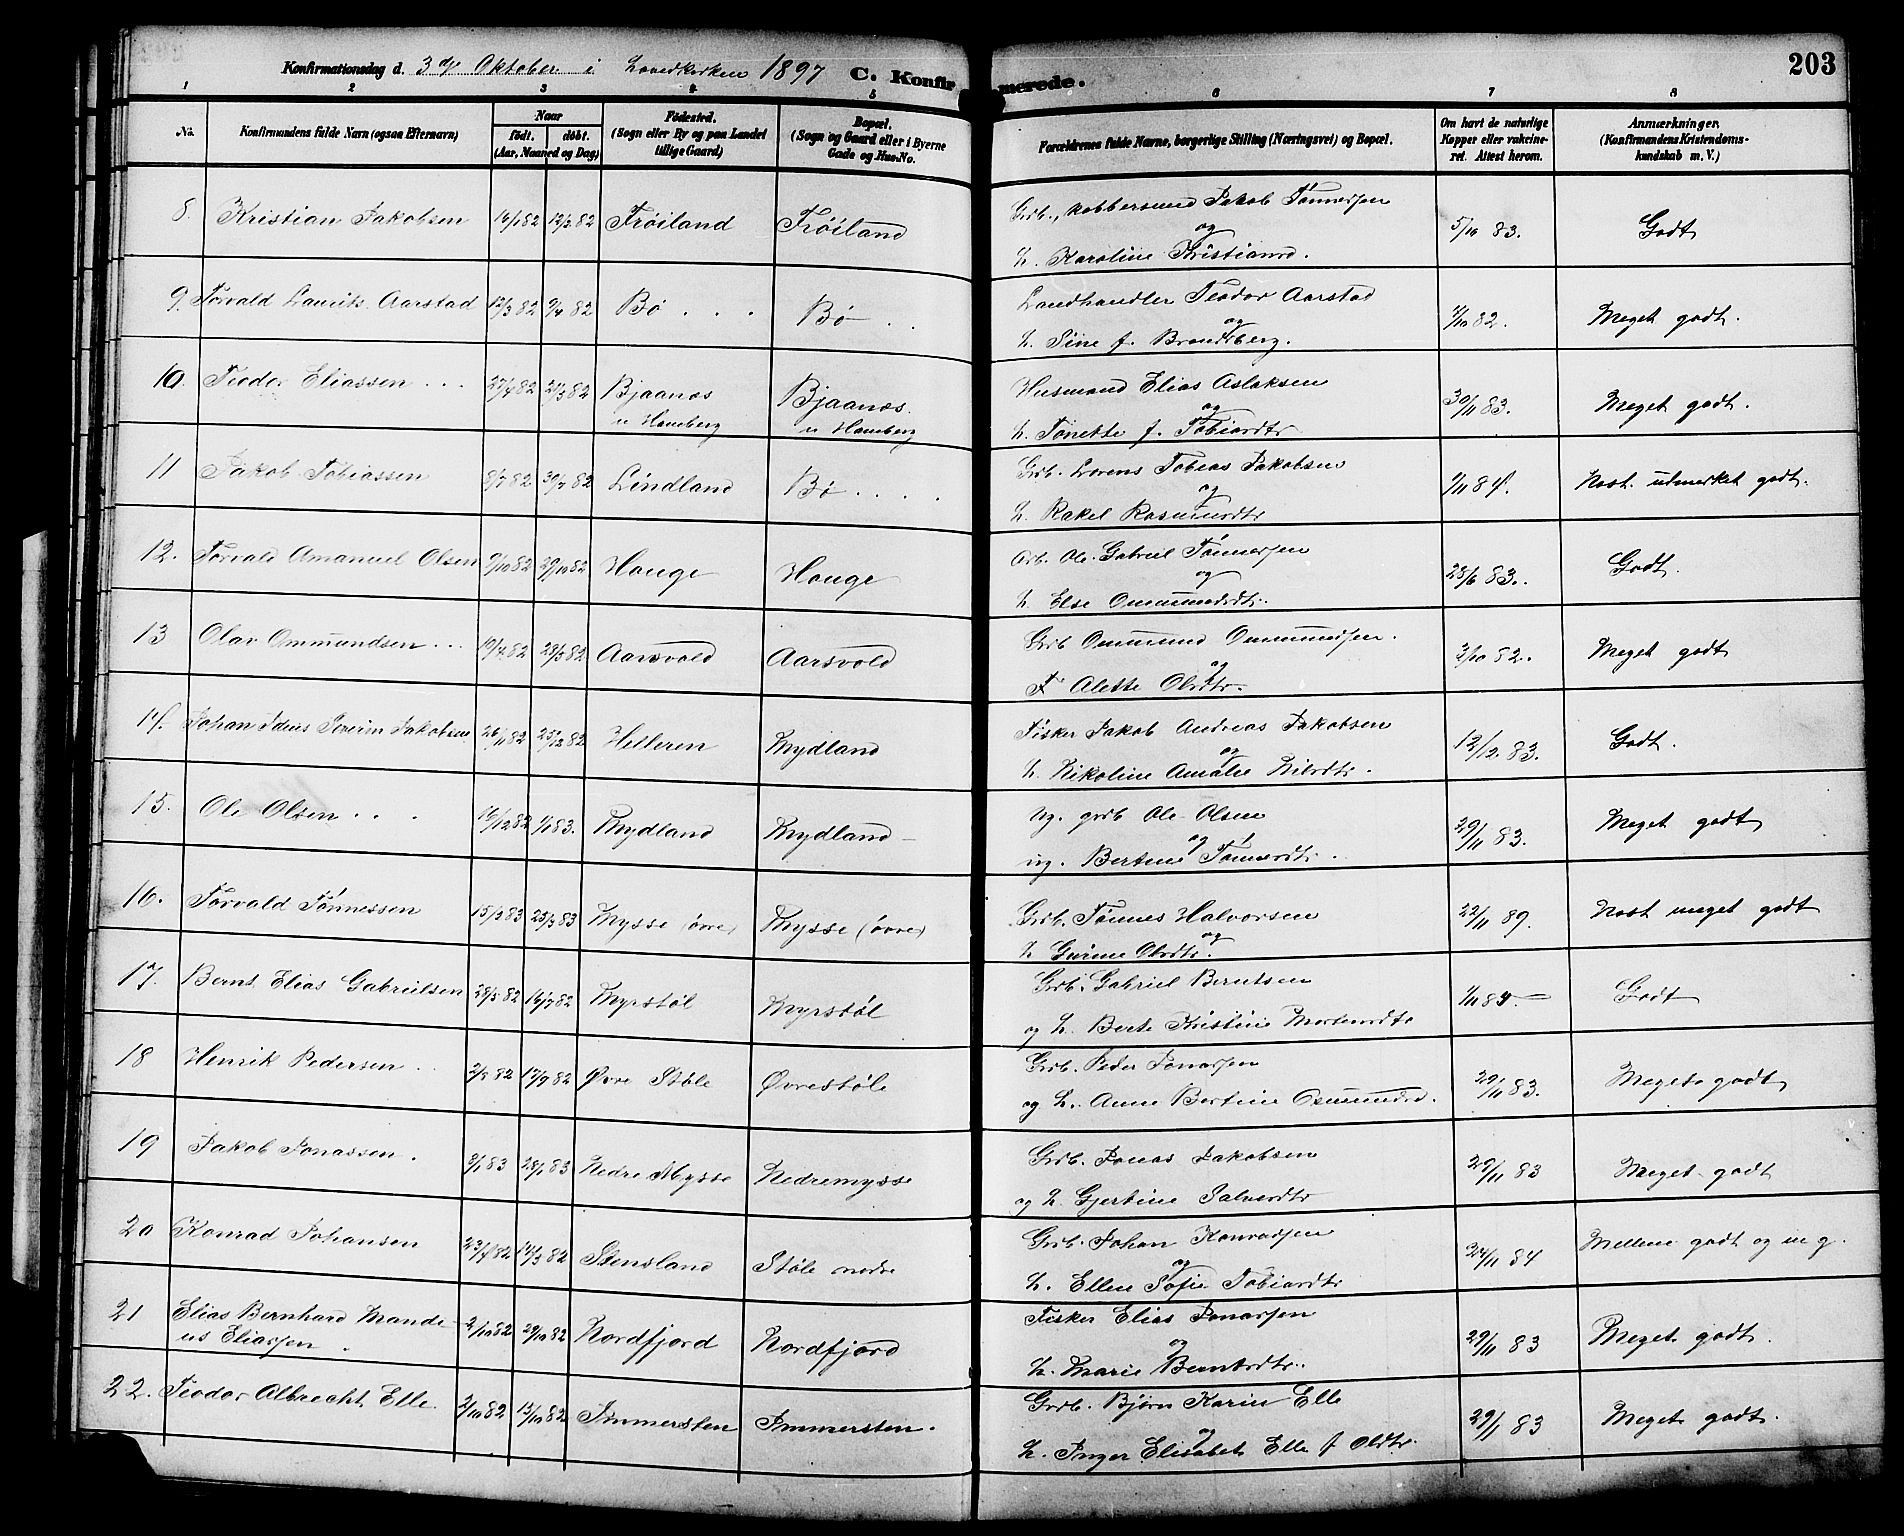 203
Konfirmationsdag d. 3die Oktober i Sonedkirken 1897 C. Konfirmerede.
1 2 3 4 5 6 7 8
No. Konfirmandens fulde Navn (ogsaa Efternavn) Naar født. døbt. (Aar, Maaned og Dag) Fødested. (Sogn eller By og paa Landet tillige Gaard) Bopæl. (Sogn og Gaard eller i Byerne Gade og Hus-No. Forældrenes fulde Navne, borgerlige Stilling (Næringsvei) og Bopæl. Om havt de naturlige Kopper eller vakcineret. Attest herom. Anmærkninger. (Konfirmandens Kristendomskundskab m. V.)
8. Kristian Jakobsen 16/1 82 12/3 82 Frøiland Frøiland Grb., kobbersmed Jakob Tønnesjen og H. Karoline Kristiansd. 5/10 83. Godt
9. Torvald Laurits Aarstad 12/3 82 9/4 82 Bø . . . Bø . . Landhandler Teodor Aarstad og H. Sine f. Brandsberg. 7/10 82. Meget godt.
10. Teodor Eliassen . . . 27/4 82 21/5 82 Bjaanes u Hamberg Bjaanes u Hamberg Husmand Elias Aslaksen og H. Tonette f. Tobiasdtr 30/11 83. Meget godt.
11 Jakob Tobiassen 8/7 82 30/7 82 Lindland Bø . . . . Grb. Lorens Tobias Jakobsen og H. Rakel Rasmusdtr 1/11 84. Næst. udmerket godt.
12. Torvald Amanuel Olsen 9/10 82 29/10 82 Hauge Hauge Arb. Ole Gabriel Tønnesjen og H. Else Ommundsdtr. 28/6 83. Godt.
13 Olav Ommundsen . . . 19/4 82 28/5 82 Aarsvold Aarsvold Grb Ommund Ommundsjen. og F Alette Olsdtr. 3/10 82. Meget godt
14. Johan Severin Jakobsen 26/11 82 25/12 82 Helleren Mydland Fisker Jakob Andreas Jakobsen og H. Nikoline Amalie Nilsdtr. 12/12 83. Godt.
15. Ole Olsen . . . 16/12 82 1/1 83. Mydland Mydland Ug. grb Ole Olsen og ug. Bertine Tønnesdtr. 29/11 83. Meget godt
16. Torvald Tønnessen 15/2 83 25/3 83 Mysse (øvre) Mysse (øvre) Grb. Tønnes Halvorsen og H Gurine Olsdtr. 22/11 89. Næst meget godt
17. Bernt Elias Gabrielsen 28/5 82 16/7 82 Myrstøl Myrstøl Grb. Gabriel Berntsen og H. Berte Kristine Mortensdtr 1/11 84 Godt
18 Henrik Pedersen . . 2/8 82 17/9 82 Øvre Støle Øvrestøle Grb. Peder Jonasjen og H. Anne Bertine Osmundsd. 29/11 83. Meget godt
19 Jakob Jonassen . 9/1 83 28/1 83 Nedre Mysse Nedremysse Grb. Jonas Jakobsen og H. Gjertine Salvesdtr 29/11 83 Meget godt
20 Konrad Johansen 23/4 82 14/5 82 Stensland Støle nedre Grb. Johan Konradsjen og H. Ellen Sofie Tobiasdtr 24/11 84 Mellem godt og m g.
21 Elias Bernhard Mandeus Eliasjen . 2/10 82 29/10 82 Nordfjord Nordfjord Fisker Elias Jonasjen og H. Marie Berntsdtr. 29/11 83 Meget godt.
22. Teodor Albrecht Elle. 2/10 82 15/10 82 Immersten Immersten. Grb. Bjørn Karin Elle og H. Inger Elisabet Elle f Olsdtr. 29/1 83 Meget godt.